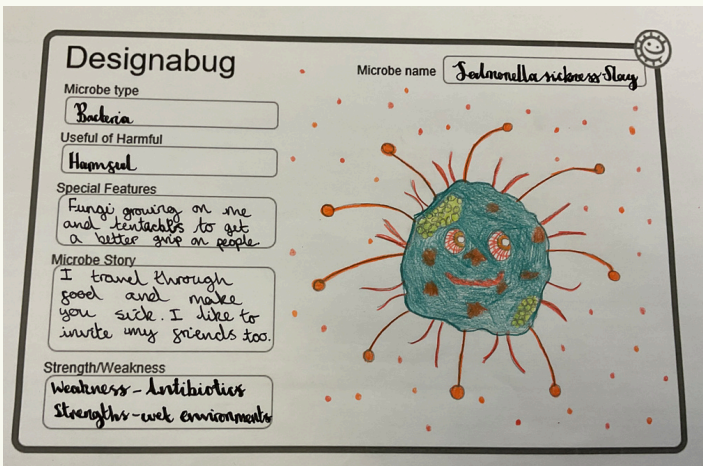 Designabug
Microbe name
Salmonella sickness Slay
Microbe type
Bacteria
Useful of Harmful
Harmful
Special Features
Fungi growing on me
and tentacles to get
a better grip on people
Microbe Story
I travel through
food and make
you sick. I like to
invite my friends too.
Strength/Weakness
Weakness - Antibiotics
Strengths - wet environments